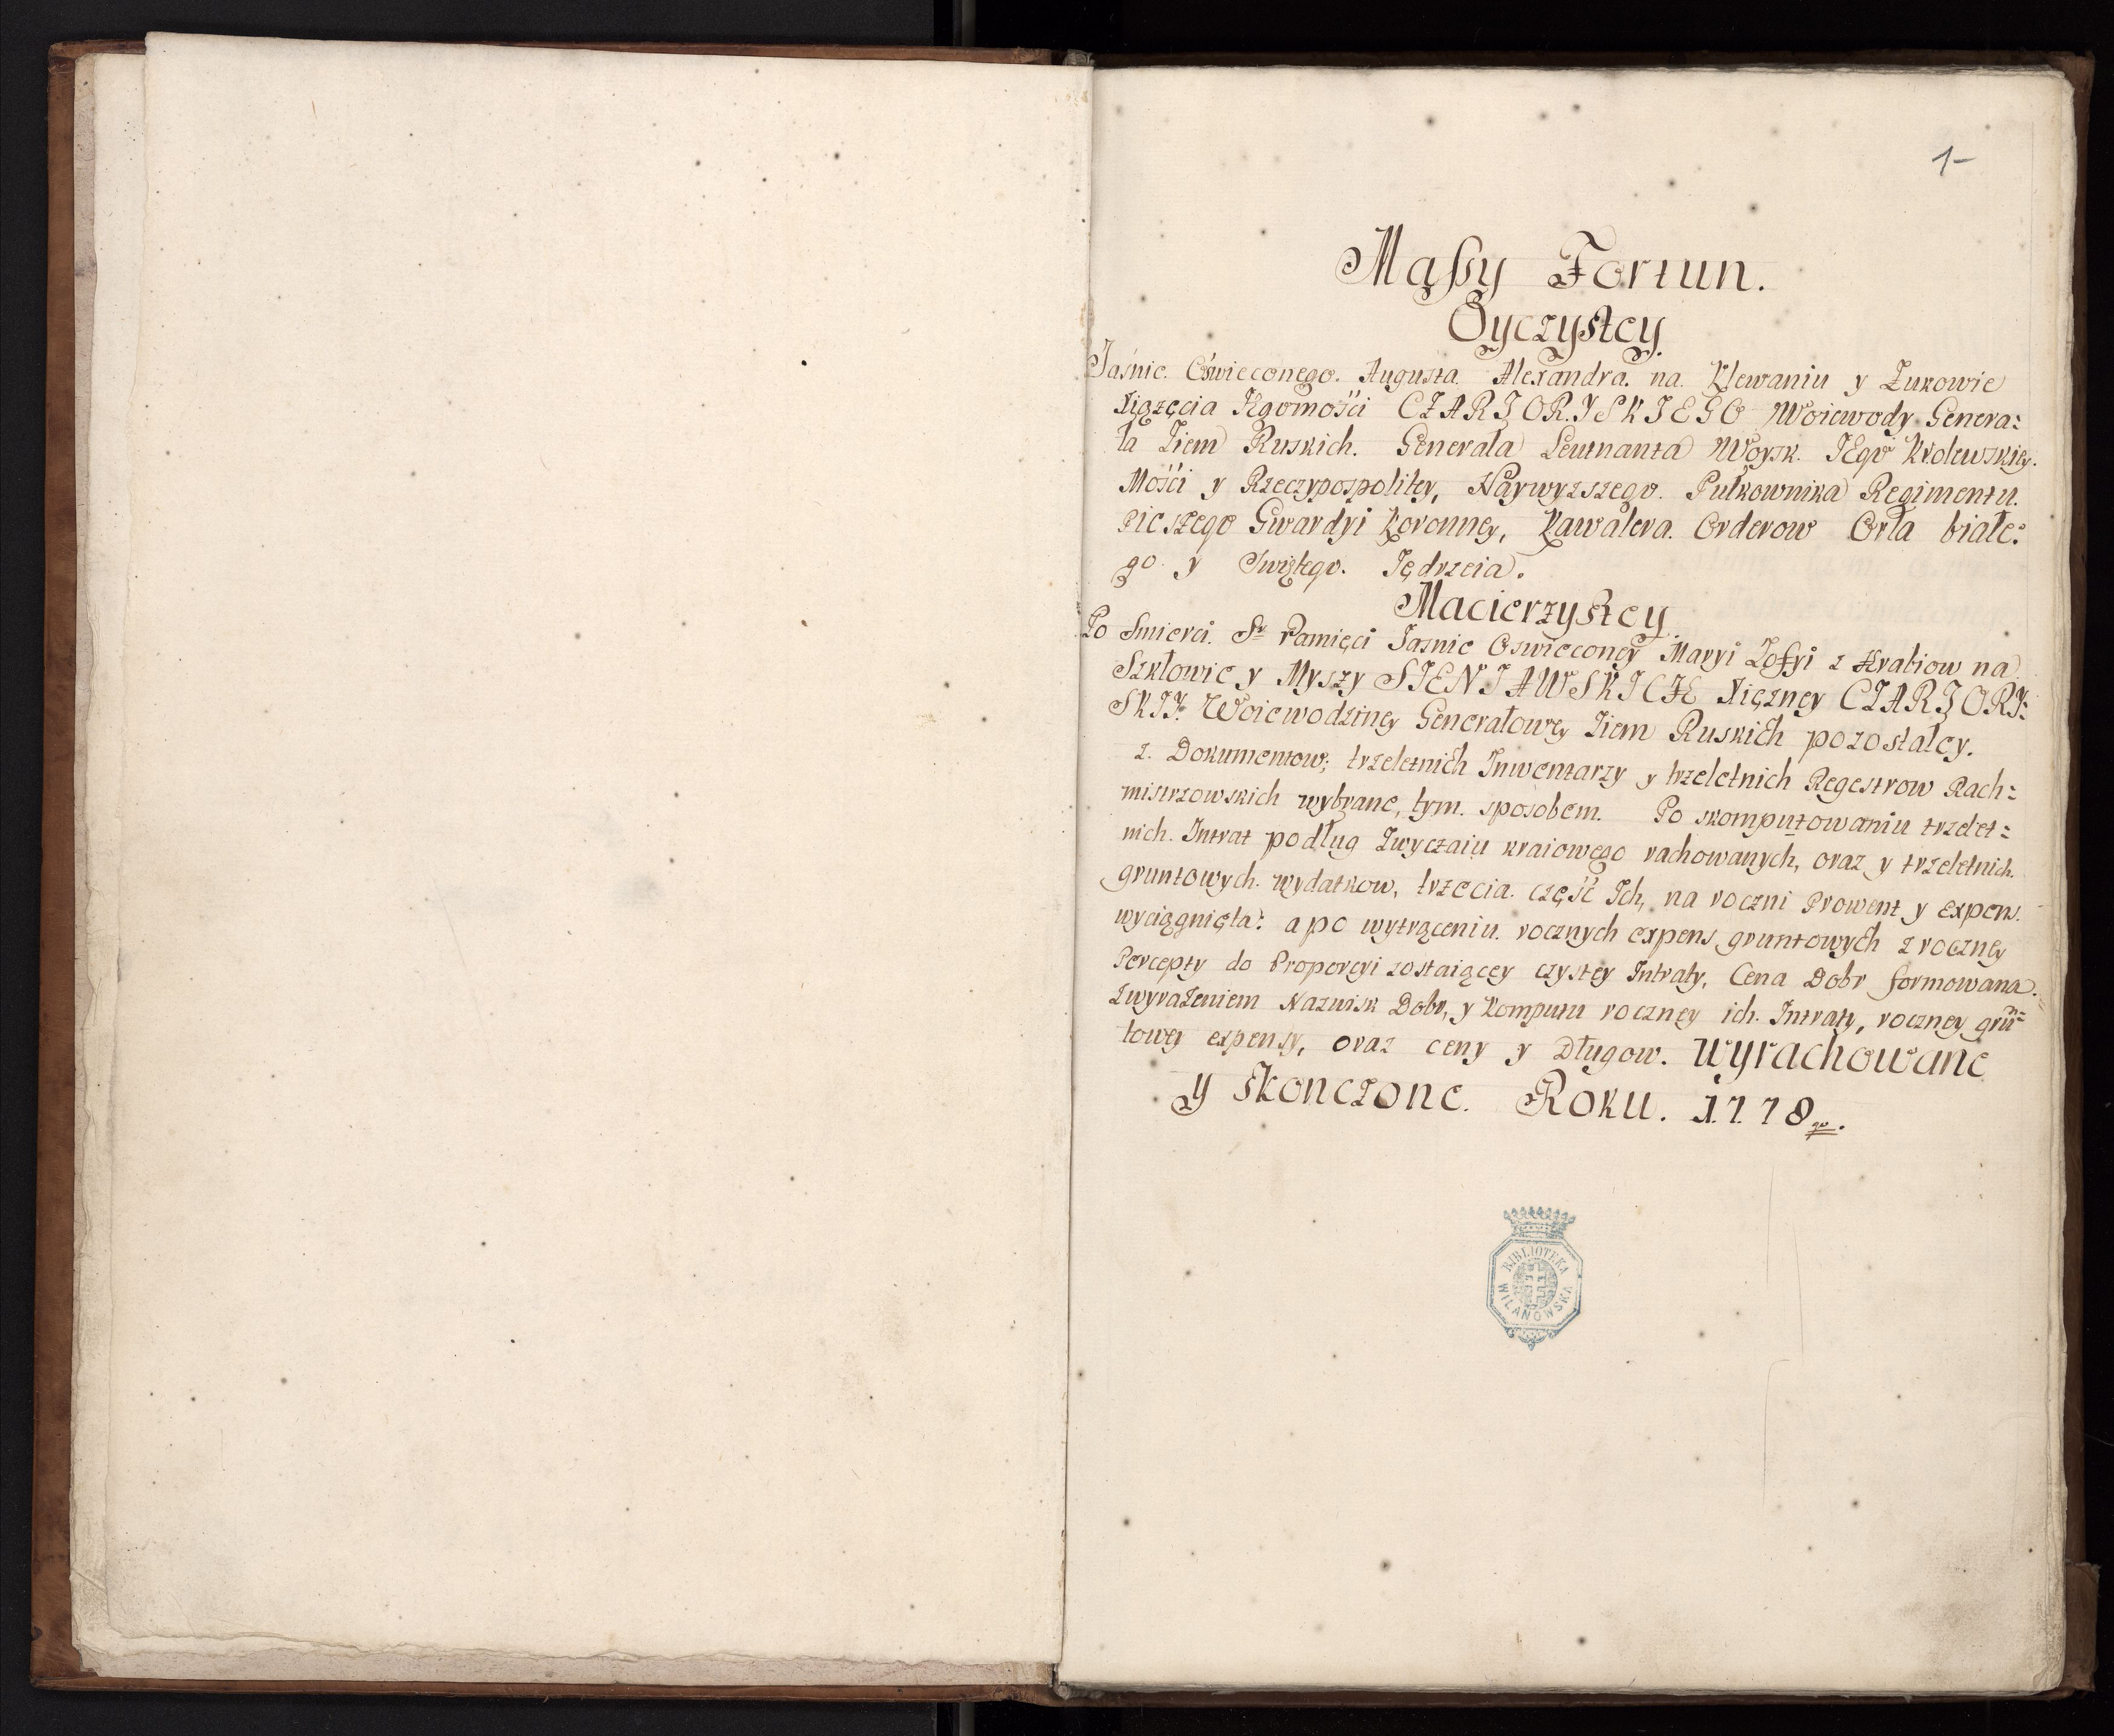 1
Maßy Fortun.
Oyczystey
Jaśnie. Oświeconego. Augusta. Alexandra. na. Klewaniu y Zukowie
Xiązęcia Jegomości CZARTORYSKIEGO Woiewody Genera:
ła Ziem Ruskich. Generała Leutnanta Woysk. JEgo Krolewskiey.
Mości y Rzeczypospolitey, Naywyzszego. Pułkownika Regimentu.
pieszego Gwardyi Koronney, Kawalera. Orderow Orła białe:
go y Swiętego. Jędrzeia.
Macierzystey
Po Smierci. S. Pamięci Jasnie Oswieconey Maryi Zofyi z Hrabiow na
Szkłowie y Myszy SIENIAWSKICH Xięzney CZARTORY:
SKIY. Woiewodziney Generałowey Ziem Ruskich pozostałey.
z. Dokumentow; trzeletnich Inwentarzy y trzeletnich Regestrow Rach:
mistrzowskich wybrane, tym. sposobem. Po skomputowaniu trzelet:
nich. Intrat podług Zwyczaiu kraiowego rachowanych, oraz y trzeletnich.
gruntowych. wydatkow, trzecia. część Ich, na roczni Prowent y expens.
wyciągnięta: a po wytrąceniu. rocznych expens gruntowych z roczney
Percepty do Proporcyi zostaiącey czystey Intraty, Cena Dobr formowana.
Zwyrażeniem Nazwisk Dobr, y Komputu roczney ich. Intraty, roczney grū=
towey expensy, oraz ceny y Długow. wyrachowane
y skonczone. Roku. 1778go.
BIBLIOTEKA
WILANOWSKA